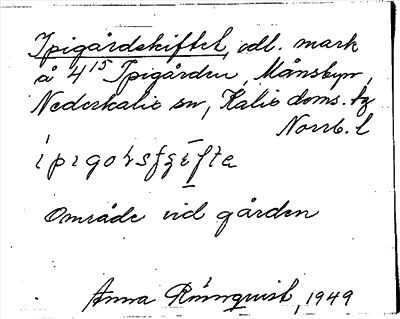 Ipigårdskiftet, odl. mark
å 4¹⁵ Ipigården, Månsbyn,
Nederkalix sn, Kalix doms. tg
Norrb. l
ipigoṣfġifta
Område vid gården
Anna Rönnquist, 1949